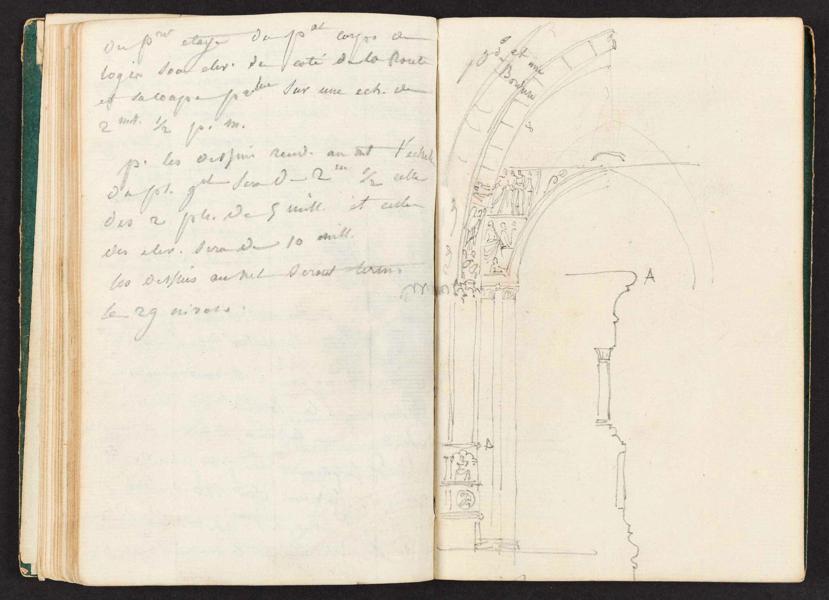 du p.er etage du p.al corps de
logis son elev. du coté de la Route
et sa coupe p.lle sur une ech. de
2 mill. ½ p. m.
p. les dessins rend. au net l'echelle
du pl. g.al sera de 2 m ½ celle
des 2 pls. de 5 mill. et celle
des elev. sera de 10 mill.
les dessins au net seront
le 29 nivose.
et une
Bordure
A
A